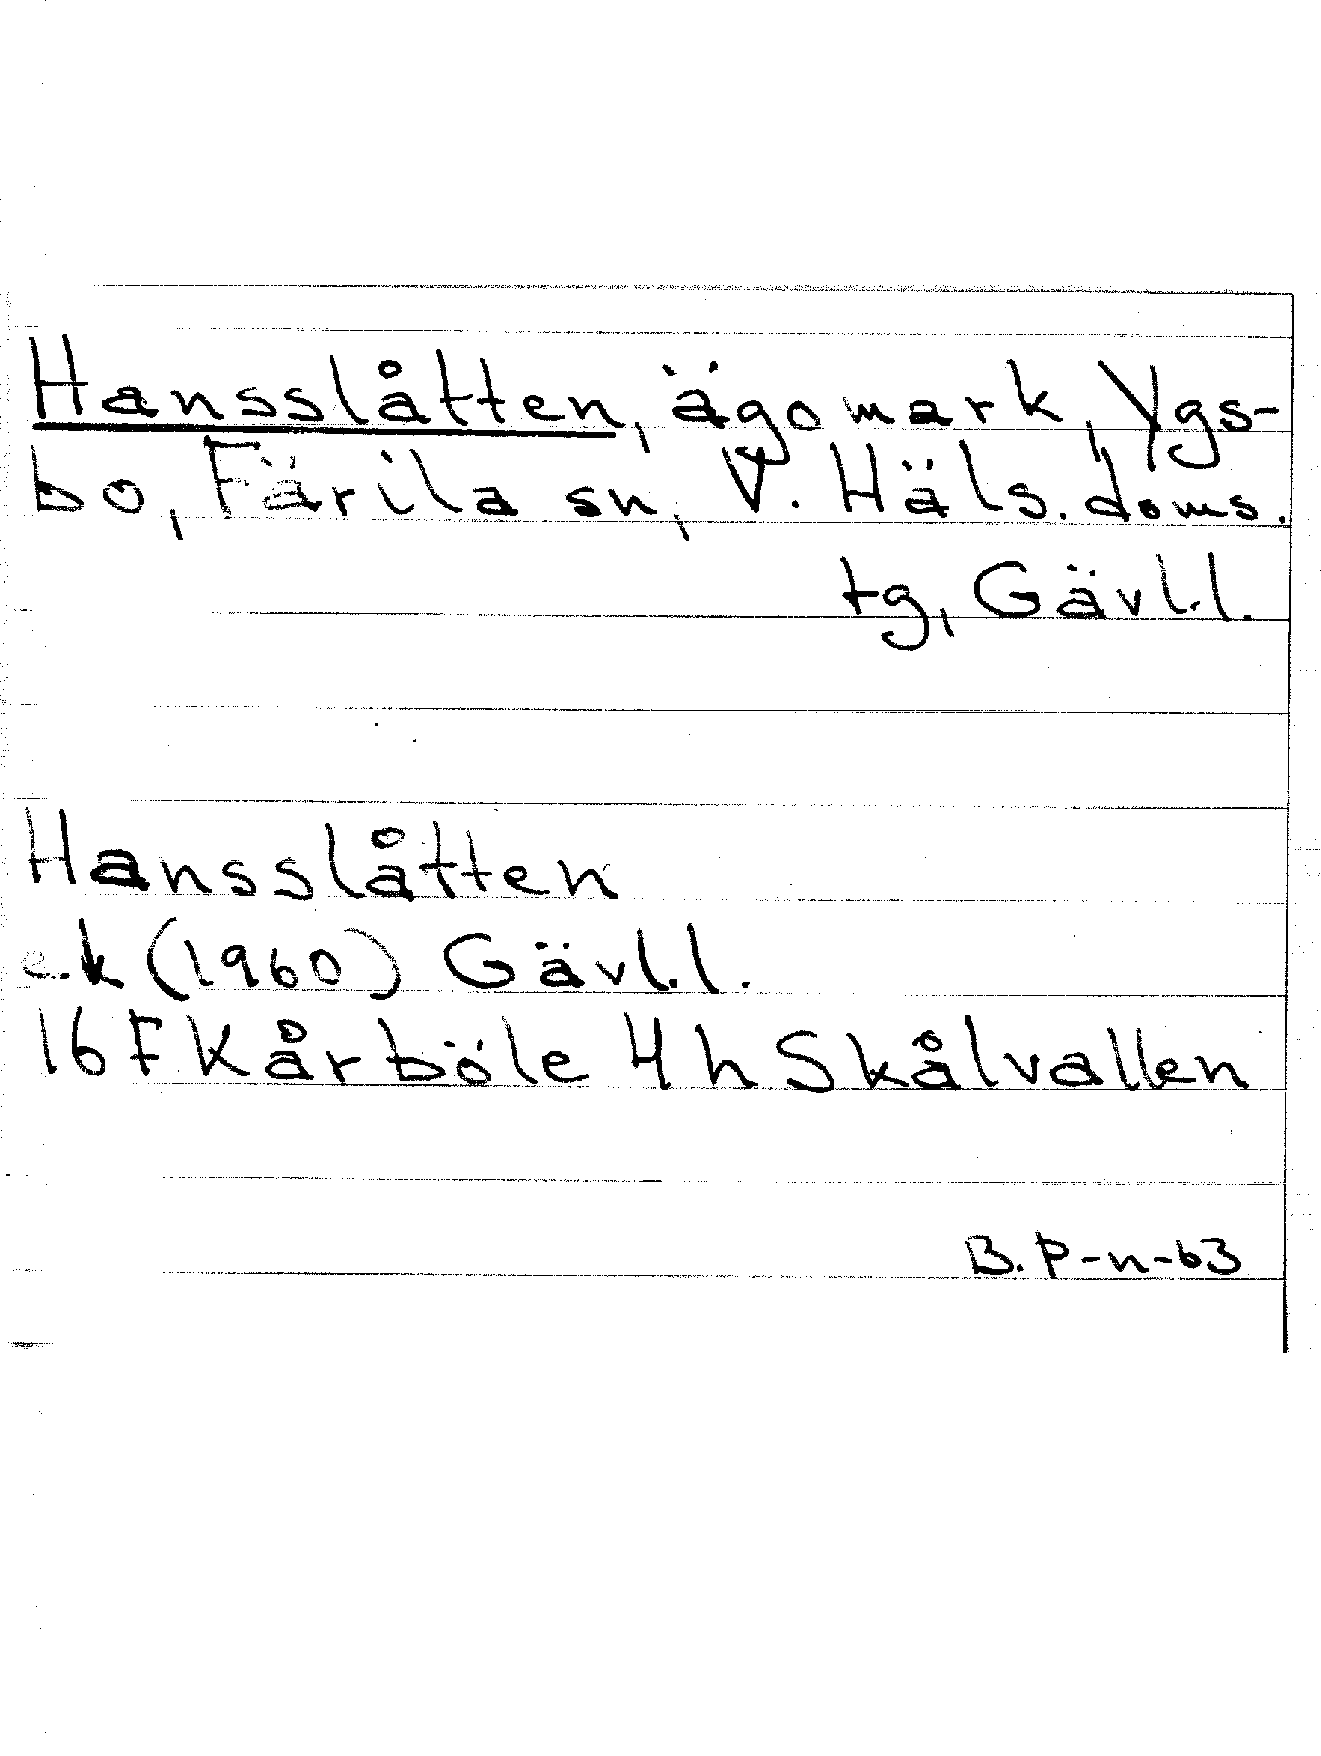 Hansslåtten, ägomark, Ygs-
bo, Färila sn, V. Häls. doms.
tg, Gävl.l.
Hansslåtten
e.k (1960) Gävl.l.
16F Kårböle 4h Skålvallen
B. P-n-63